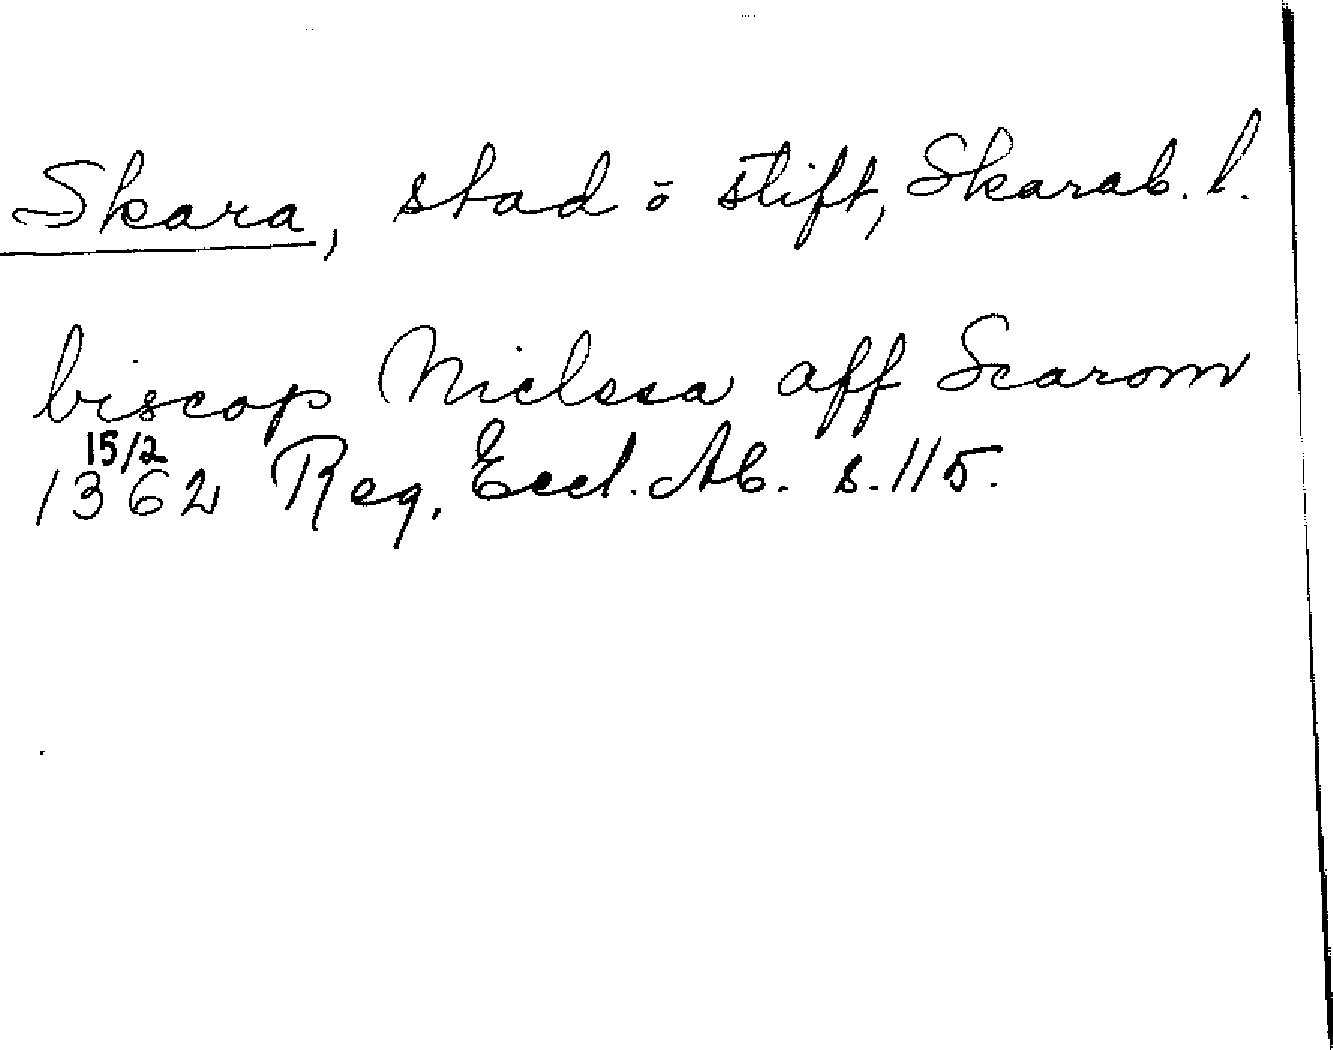 Skara, stad o stift, Skarab. l.
biscop Nielssa aff Scarom
15/2
1362 Reg. Eccl. Ab. s. 115.